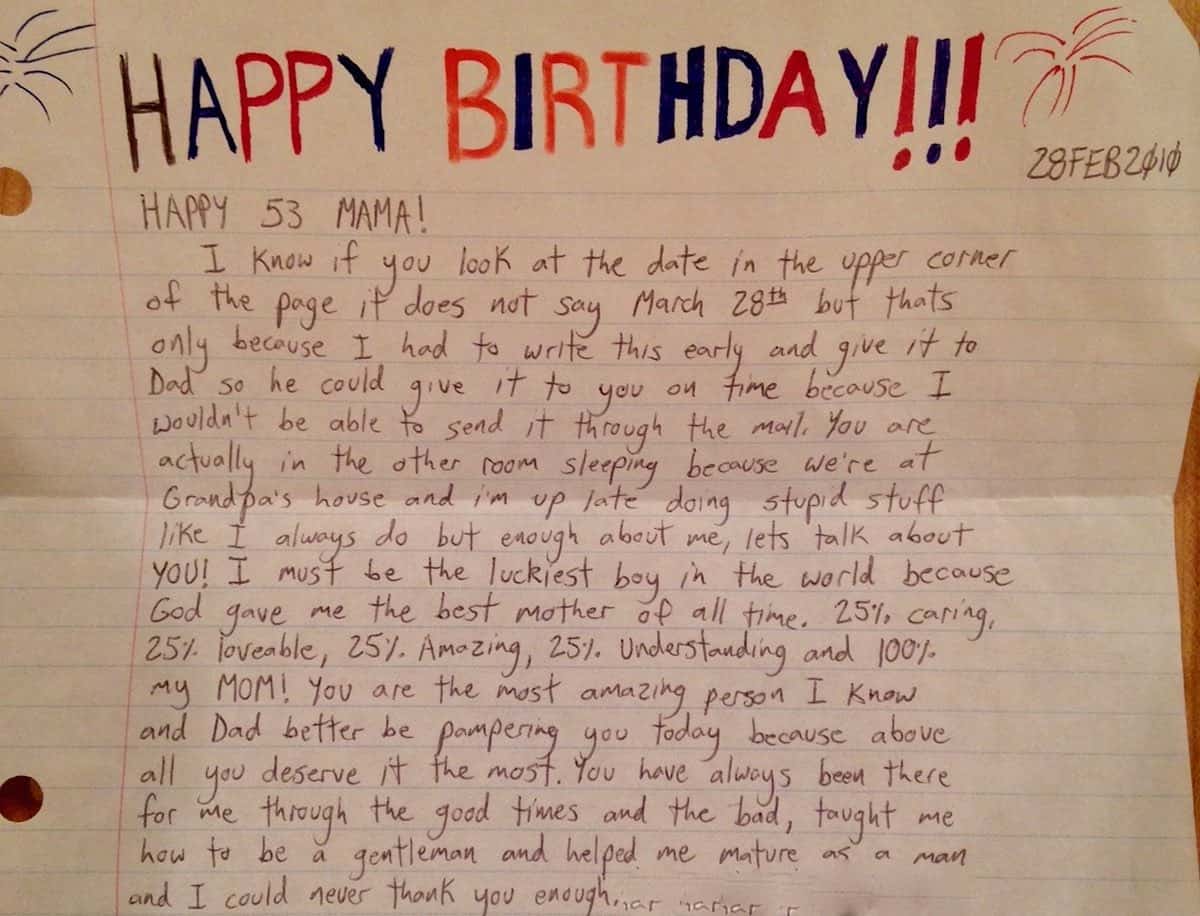 HAPPY BIRTHDAY!!!
28FEB2010
HAPPY 53 MAMA!
I know if you look at the date in the upper corner
of the page it does not say March 28th but thats
only because I had to write this early and give it to
Dad so he could give it to you on time because I
wouldn't be able to send it through the mail. You are
actually in the other room sleeping because we're at
Grandpa's house and i'm up late doing stupid stuff
like I always do but enough about me, lets talk about
YOU! I must be the luckiest boy in the world because
God gave me the best mother of all time. 25% caring,
25% loveable, 25% Amazing, 25% Understanding and 100%
my MOM! You are the most amazing person I know
and Dad better be pampering you today because above
all you deserve it the most. You have always been there
for me through the good times and the bad, taught me
how to be a gentleman and helped me mature as a man
and I could never thank you enough.